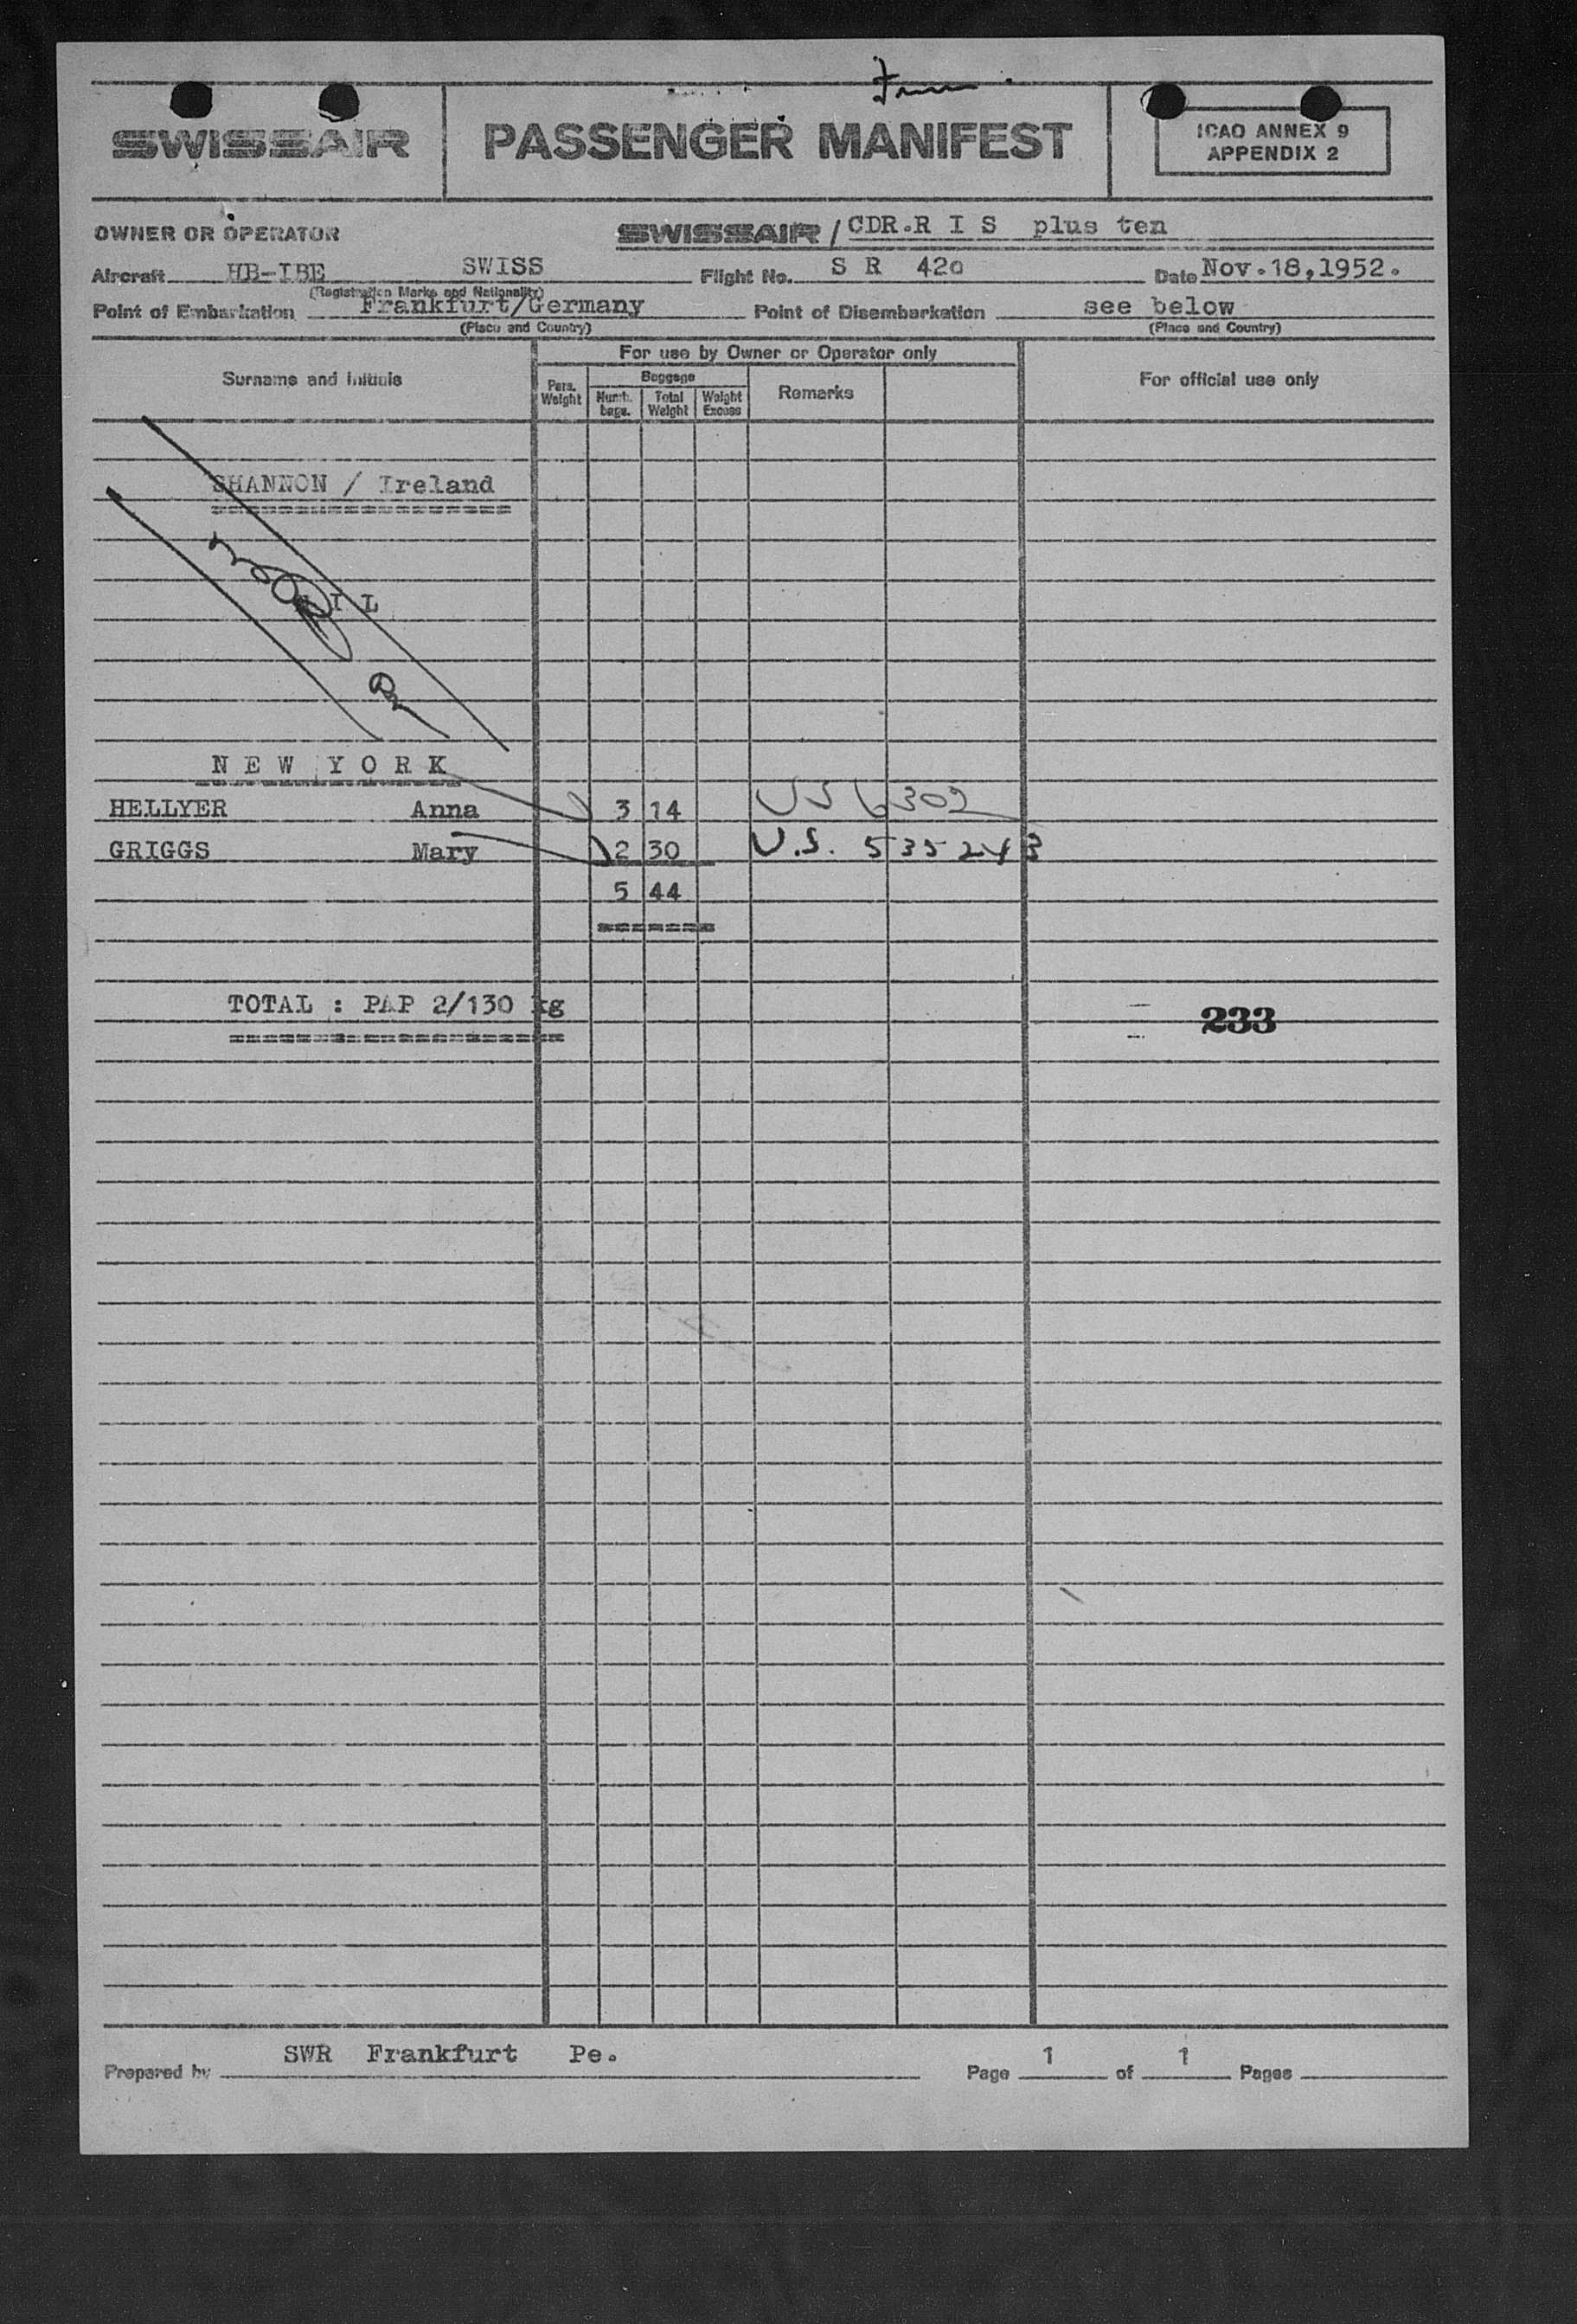 SWISSAIR
PASSENGER MANIFEST
ICAO ANNEX 9
APPENDIX 2
OWNER OR OPERATOR SWISSAIR / CDR.R I S plus ten
Aircraft HB-IBE SWISS Flight No. S R 42o Date Nov.18,1952.
(Registration Marks and Nationality)
Point of Embarkation Frankfurt/Germany Point of Disembarkation see below
(Place and Country) (Place and Country)
Surname and initials
For use by Owner or Operator only
Pers. Weight
Baggage
Numb. bags.
Total Weight
Weight Excess
Remarks
For official use only
SHANNON / Ireland
I L
N E W Y O R K
HELLYER Anna 3 14 US 6302
GRIGGS Mary 2 30 U.S. 535243
5 44
TOTAL : PAP 2/130 kg
233
SWR Frankfurt Pe.
Prepared by Page 1 of 1 Pages